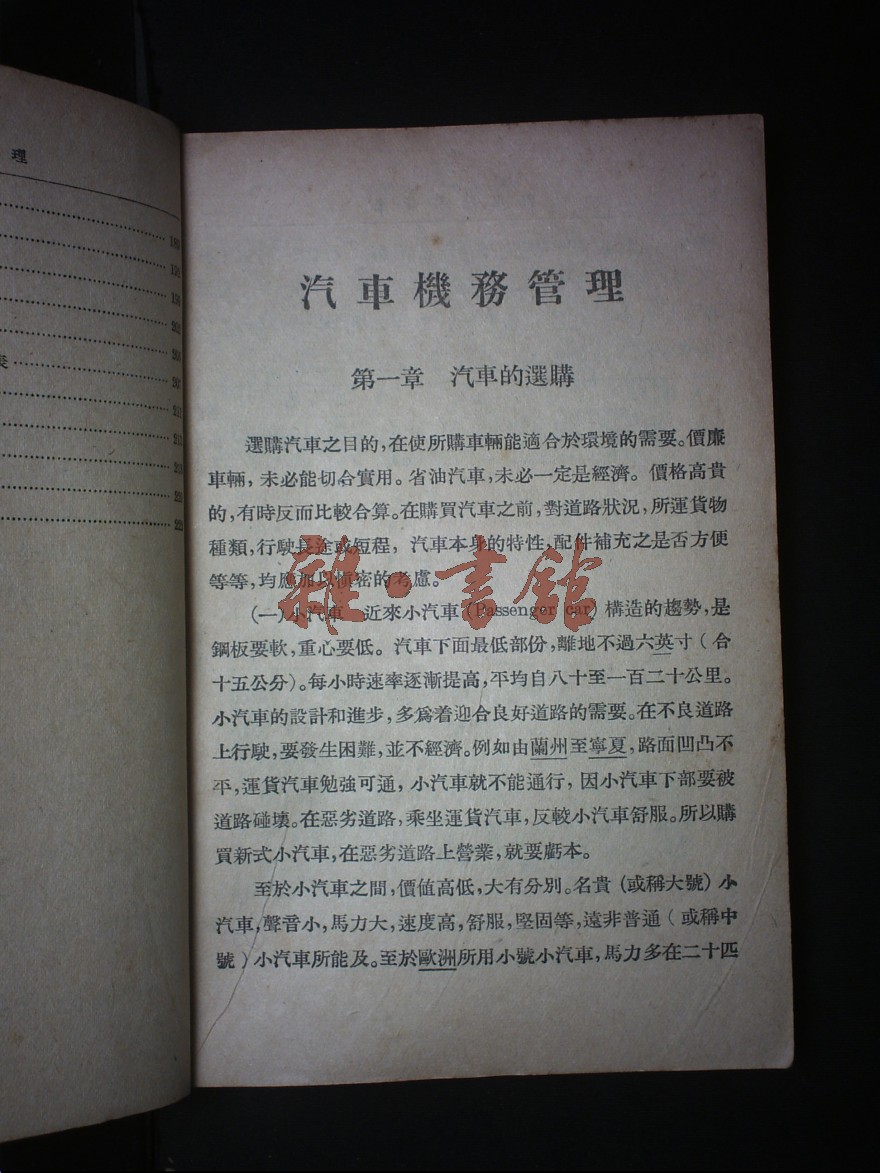 理
189
191
198
202
204
表 207
211
213
215
220
222
汽車機務管理
第一章 汽車的選購
選購汽車之目的,在使所購車輛能適合於環境的需要。價廉
車輛,未必能切合實用。省油汽車,未必一定是經濟。價格高貴
的,有時反而比較合算。在購買汽車之前,對道路狀況,所運貨物
種類,行駛長途或短程,汽車本身的特性,配件補充之是否方便
等等,均應加以慎密的考慮。
雜·書館
(一)小汽車 近來小汽車(Passenger car)構造的趨勢,是
鋼板要軟,重心要低。汽車下面最低部份,離地不過六英寸(合
十五公分)。每小時速率逐漸提高,平均自八十至一百二十公里。
小汽車的設計和進步,多爲着迎合良好道路的需要。在不良道路
上行駛,要發生困難,並不經濟。例如由蘭州至寧夏,路面凹凸不
平,運貨汽車勉強可通,小汽車就不能通行,因小汽車下部要被
道路碰壞。在惡劣道路,乘坐運貨汽車,反較小汽車舒服。所以購
買新式小汽車,在惡劣道路上營業,就要虧本。
至於小汽車之間,價値高低,大有分別。名貴(或稱大號)小
汽車,聲音小,馬力大,速度高,舒服,堅固等,遠非普通(或稱中
號)小汽車所能及。至於歐洲所用小號小汽車,馬力多在二十匹